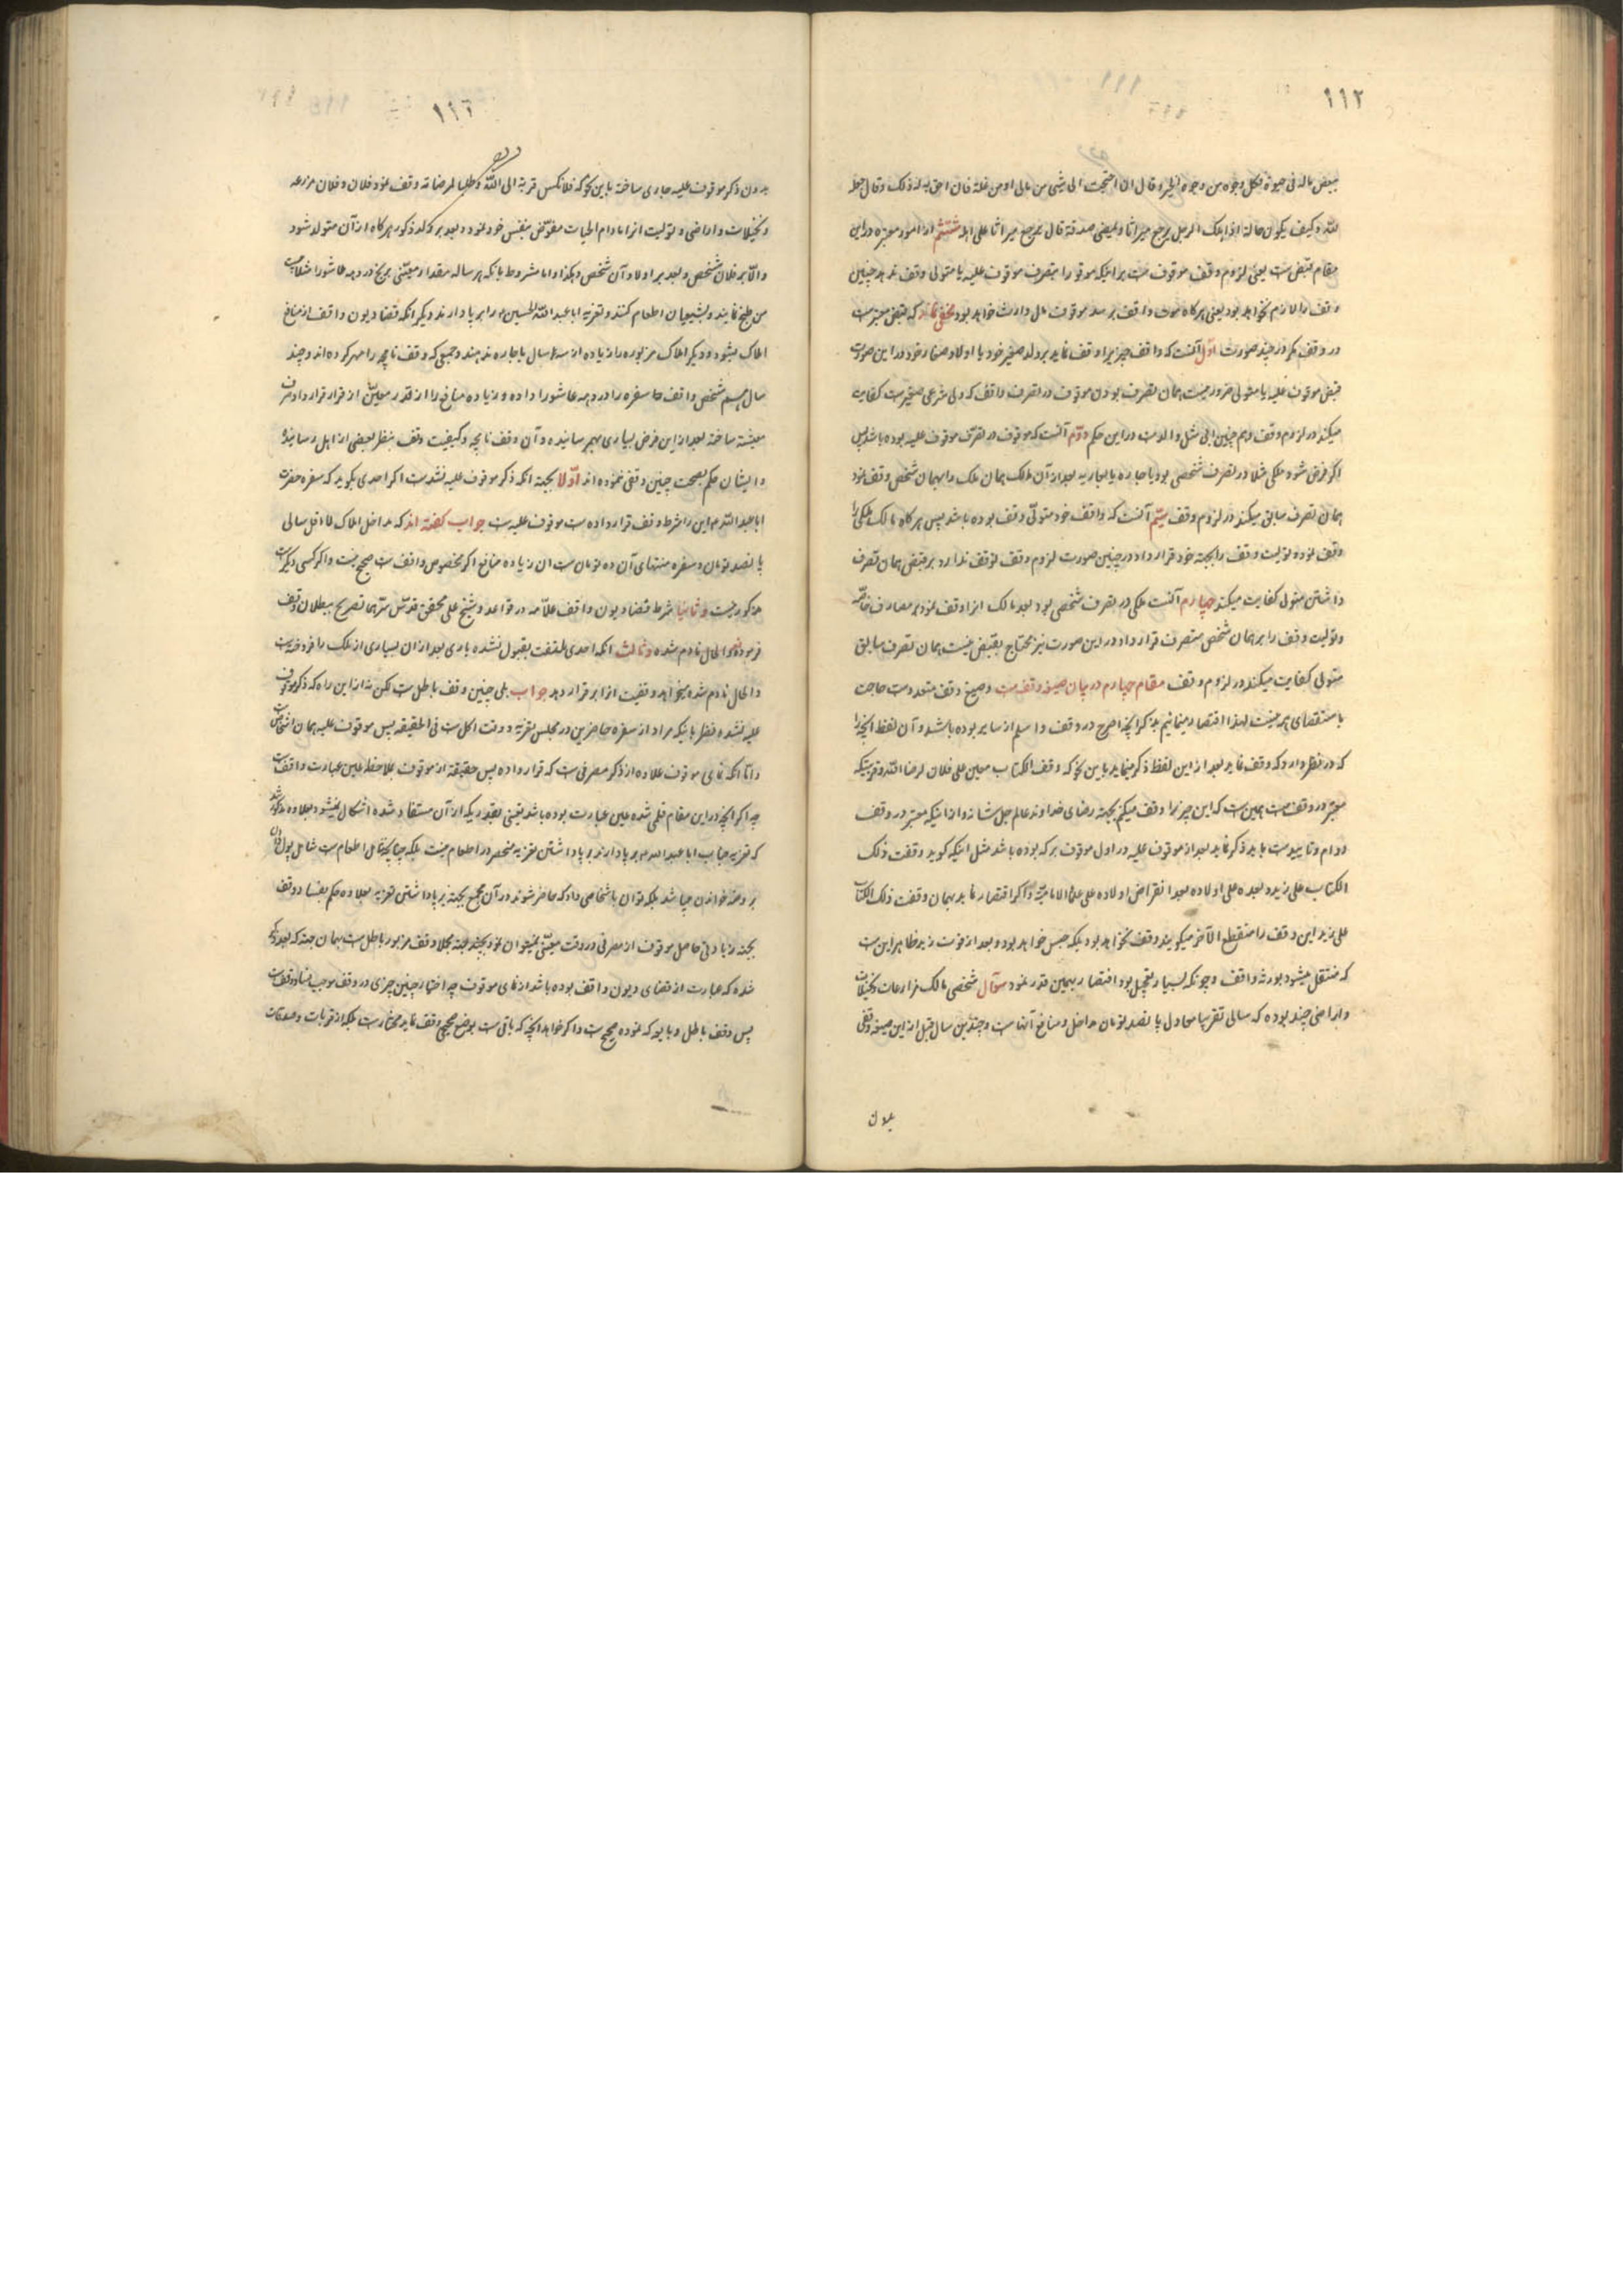 ١١٢
ببعض ماله فی حیوة فکل وجوه من وجوه الخیر و قال ان احتجت الی شی من مالی او من غلة فان احق به له ذلک و قال جعله
لله و کیف یکون حاله اذا هلک الرجل یرجع میراثا و یمضی صدقة قال یرجع میراثا علی اهله ششم از امور معتبره در این
مقام قبض ست یعنی لزوم وقف موقوف ست بر اینکه موقوفه را بتصرف موقوف علیه یا متولی وقف ندهد چنین
وقف را لازم نخواهد بود یعنی هرکاه موت واقف برسد موقوف مال وارث خواهد بود مخفی نماند که قبض معتبر ست
در وقف مکر در چند صورت اول آنست که واقف چیزیرا وقف نماید بر ولد صغیر خود یا اولاد صغار خود در این صورت
قبض موقوف علیه یا متولی ضرور نیست همان تصرف بودن موقوف در تصرف واقف که ولی شرعی صغیر ست کفایت
میکند در لزوم وقف و هم چنین ابی مثل والد ست در این حکم دوم آنست که موقوف در تصرف موقوف علیه بوده باشد پس
اکر فرض شود ملکی مثلا در تصرف شخصی بود باجاره یا بعاریه بعد از آن مالک همان ملک را بهمان شخص وقف نمود
همان تصرف سابق میکند در لزوم وقف سیم آنست که واقف خود متولی وقف بوده باشد پس هرکاه مالک ملکی را
وقف نموده تولیت وقف را بجهة خود قرار داد در چنین صورت لزوم وقف توقف ندارد بر قبض همان تصرف
داشتن متولی کفایت میکند چهارم آنست ملکی در تصرف شخصی بود بعد مالک انرا وقف نمود بر مصارف خاصه
و تولیت وقف را بر همان شخص متصرف قرار داد در این صورت نیز محتاج بقبض نیست همان تصرف سابق
متولی کفایت میکند در لزوم وقف مقام چهارم در بیان صیغه وقف ست و صیغ وقف متعدد ست حاجت
باستقصای همه نیست لهذا اقتصار مینمائیم بذکر آنچه اصرح در وقف و اسلم از سایر بوده باشد و آن لفظ آنچه را
که در نظر دارد که وقف نماید بعد از این لفظ ذکر مینماید باین نحو که وقفت الکتاب معین علی فلان لرضا الله و قربتیکه
معتبر در وقف ست همین ست که این چیز را وقف میکنم بجهة رضای خداوند عالم جل شانه و از انیکه معتبر در وقف
دوام و تابید ست باید ذکر نماید بعد از موقوف علیه در اول موقوف بر که بوده باشد مثل اینکه کوید وقفت ذلک
الکتاب علی زید و بعده علی اولاده بعد انقراض اولاده علی علماء الامامیة و اکر اقتصار نماید بهمان وقفت ذلک الکتاب
علی زید این وقف را منقطع الآخر میکویند وقف نخواهد بود بلکه حبس خواهد بود و بعد از فوت زید ظاهر این ست
که منتقل میشود بورثه واقف و چونکه بسیار تعجیل بود اقتصار بهمین قدر نمود سؤال شخصی مالک مزارعات و نخیلات
و اراضی چند بوده که سالی تقریبا معادل پانصد تومان مداخل و منافع آنها ست و چندین سال قبل از این صیغه وقفی
بدون
١١٣
بدون ذکر موقوف علیه جاری ساخته باین نحو که فلانکس قربة الی الله و طلبا لمرضاته وقف نمود فلان و فلان مزرعه
و نخیلات و اراضی و تولیت انرا مادام الحیات مفوض بنفس خود نمود و بعد بر ولد ذکور هرکاه از آن متولد شود
و الا بر فلان شخص و بعد بر اولاد آن شخص و هکذا و اما مشروط بانکه هر ساله مقدار معینی برنج در دهه عاشورا مثلا
من طبخ نمایند و بشیعیان اطعام کنند و تعزیه اباعبد الله الحسین را بر پا دارند و دیکر انکه قضا دیون واقف از منافع
املاک بشود و دیکر املاک مزبوره را زیاده از سه سال باجاره ندهند و جمعی که وقف نامچه را مهر کرده اند و چند
سال هم شخص واقف سفره را در دهه عاشورا داده و زیاده منافع را از قدر معین از قرار قرارداد صرف
معیشة ساخته بعد از این قرض بسیاری بهم رسانیده و آن وقف نامچه و کیفیت وقف بنظر بعضی از اهل رسانیده
و ایشان حکم بصحت چنین وقفی ننموده اند اولا بجهة انکه ذکر موقوف علیه نشده ست اکر احدی بکوید که سفره حضرت
اباعبد الله این را شرط وقف قرار داده ست موقوف علیه ست جواب کفته اند که مداخل املاک لا اقل سالی
پانصد تومان و سفره منتهای آن ده تومان ست ان زیاده منافع اکر مخصوص واقف ست صحیح نیست و اکر کسی دیکر ست
مذکور نیست و ثانیا شرط قضا دیون واقف علامه در قواعد و شیخ علی محقق قدس سرهما تصریح ببطلان وقف
فرموده و الحال نادم شده و ثالث انکه احدی ملتفت بقبول نشده باری بعد از ان بسیاری از ملک را فروخته ست
و الحال نادم شده میخواهد وقفیت انرا بر قرار دهد جواب بلی چنین وقف باطل ست لکن نه از این راه که ذکر موقوف
علیه نشده نظر باینکه مراد از سفره حاضرین در مجلس تعزیه و وقت اکل ست فی الحقیقه پس موقوف علیه همان اشخاص ست
و اما انکه نمای موقوف علاوه از ذکر مصرفی ست که قرار داده پس حقیقة از موقوف بملاحظه عین عبارت واقف ست
چه اکر آنچه در این مقام قلمی شده عین عبارت بوده باشد یقینی بقدریکه از آن مستفاد شده اشکال نمیشود بعلاوه مذکور شد
که تعزیه جناب اباعبد الله بر پا دارند بر پا داشتن تعزیه منحصر در اطعام نیست بلکه چنانچه شامل اطعام ست شامل پول دادن
بروضه خوانان میباشد بلکه توان باشخاصی داد که حاضر شوند در آن مجمع بجهة بر پا داشتن تعزیه بعلاوه حکم بفساد وقف
بجهة زیادتی حاصل موقوف از مصرفی در وقت معینی نمیتوان نمود مجملا وقف مزبور باطل ست بهمان جهة که بعد ذکر
شده که عبارت از قضای دیون واقف بوده باشد از نمای موقوف چه اختیار چنین چیزی در وقف موجب فساد وقف ست
پس وقف باطل و بایو که نموده صحیح ست و اکر خواهد آنچه که باقی ست بوضع صحیحی وقف نماید مختار ست بلکه از قربات و صدقات